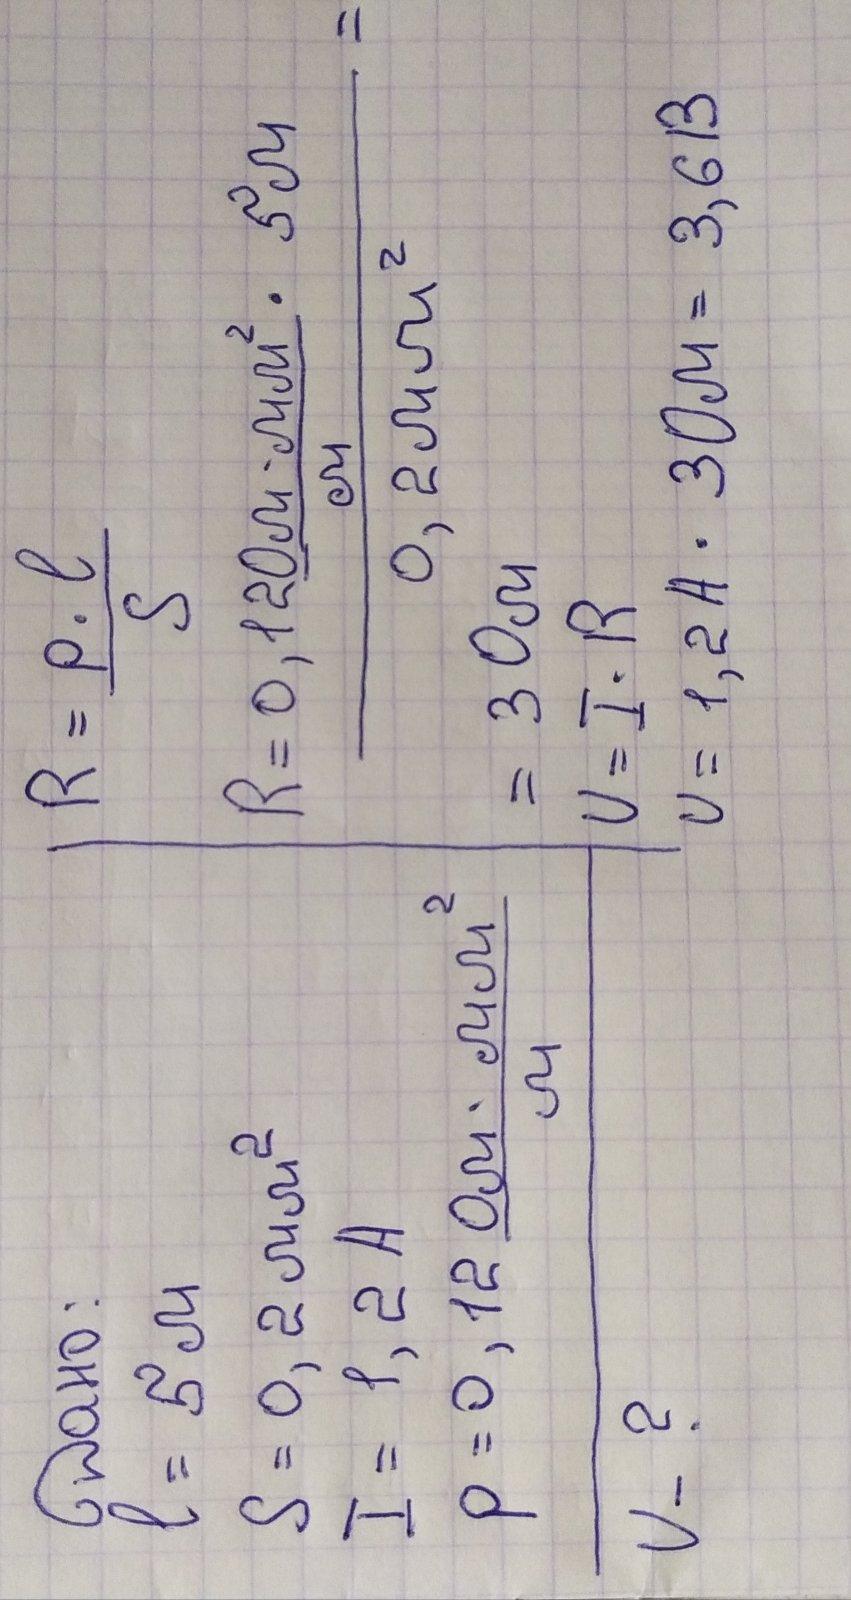 Дано:
l = 5 м
S = 0,2 мм²
I = 1,2 А
ρ = 0,12 Ом·мм²
м
U - ?
R = ρ·l
S
R = 0,12 Ом·мм² · 5 м =
м
0,2 мм²
= 3 Ом
U = I·R
U = 1,2 А · 3 Ом = 3,6 В